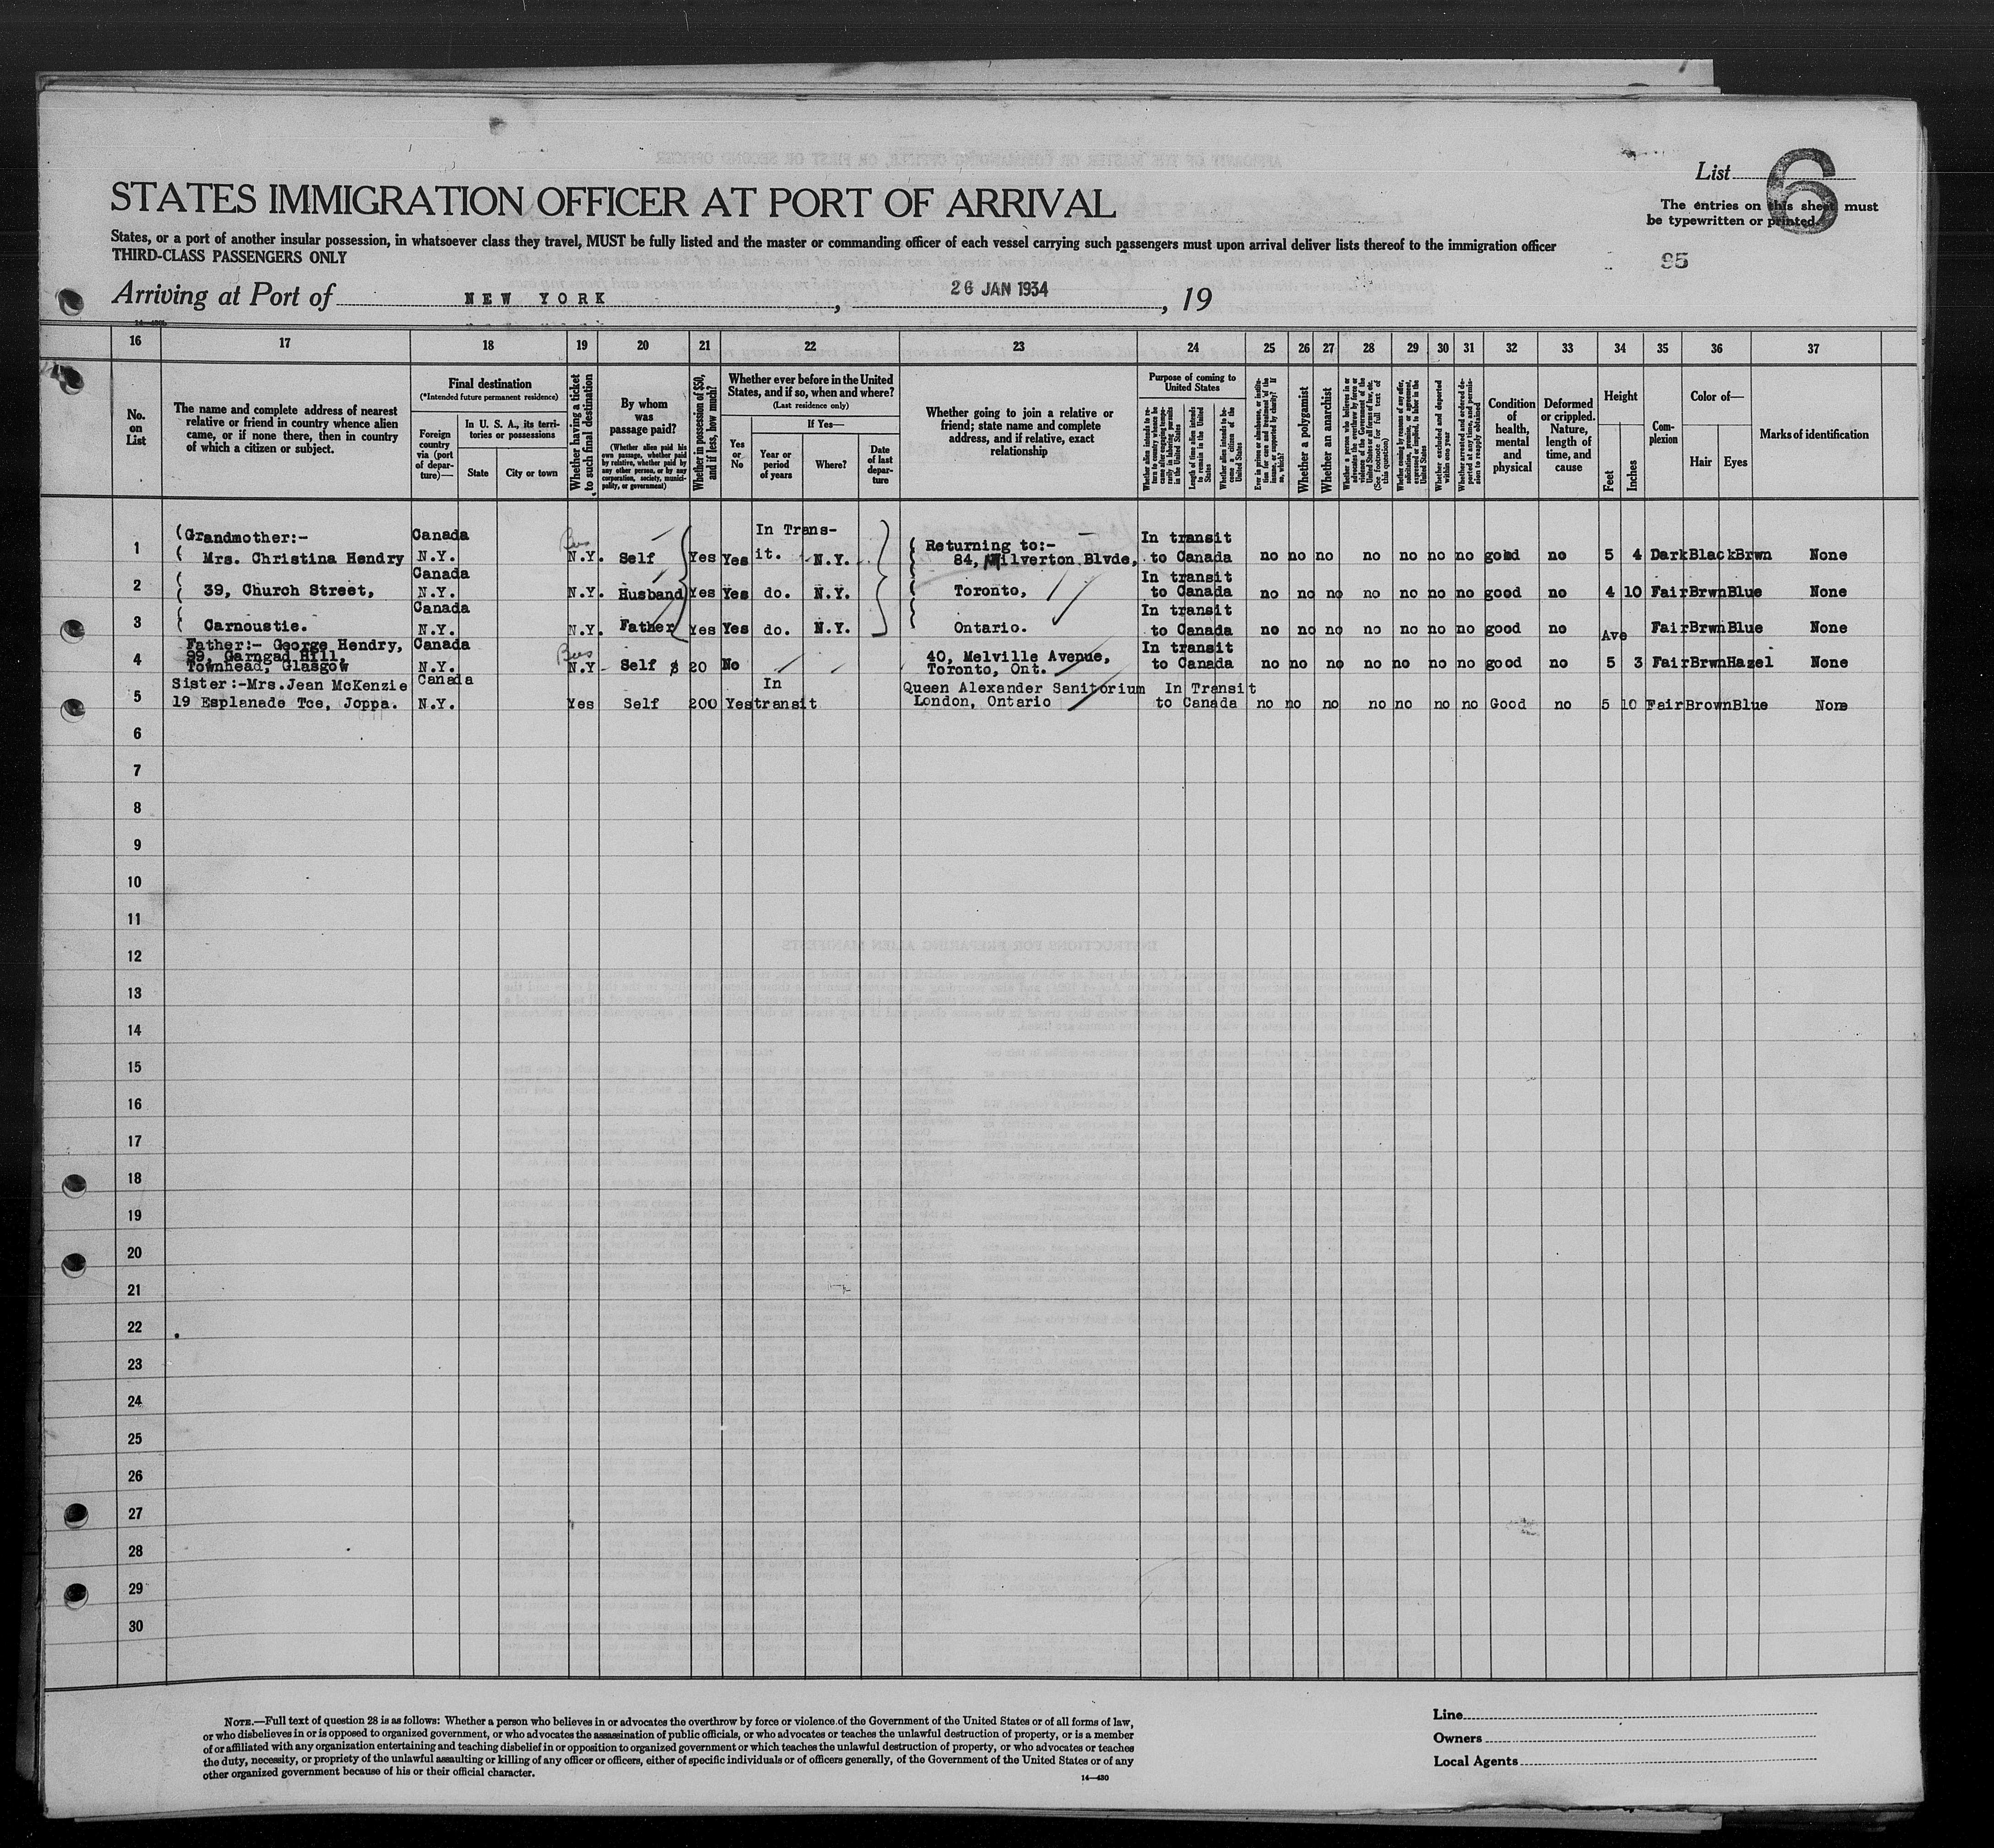 List 6
STATES IMMIGRATION OFFICER AT PORT OF ARRIVAL
The entries on this sheet must
be typewritten or printed.
States, or a port of another insular possession, in whatsoever class they travel, MUST be fully listed and the master or commanding officer of each vessel carrying such passengers must upon arrival deliver lists thereof to the immigration officer
THIRD-CLASS PASSENGERS ONLY
95
Arriving at Port of NEW YORK, 26 JAN 1934, 19
16 17 18 19 20 21 22 23 24 25 26 27 28 29 30 31 32 33 34 35 36 37
No. on List
The name and complete address of nearest relative or friend in country whence alien came, or if none there, then in country of which a citizen or subject.
Final destination
(*Intended future permanent residence)
Foreign country via (port of departure)—
In U. S. A., its territories or possessions
State
City or town
Whether having a ticket to such final destination
By whom was passage paid?
(Whether alien paid his own passage, whether paid by relative, whether paid by any other person, or by any corporation, society, municipality, or government)
Whether in possession of $50, and if less, how much?
Whether ever before in the United States, and if so, when and where?
(Last residence only)
Yes or No
If Yes—
Year or period of years
Where?
Date of last departure
Whether going to join a relative or friend; state name and complete address, and if relative, exact relationship
Purpose of coming to United States
Whether alien intends to return to country whence he came after engaging temporarily in laboring pursuits in the United States
Length of time alien intends to remain in the United States
Whether alien intends to become a citizen of the United States
Ever in prison or almshouse, or institution for care and treatment of the insane, or supported by charity? If so, which?
Whether a polygamist
Whether an anarchist
Whether a person who believes in or advocates the overthrow by force or violence of the Government of the United States or all forms of law, etc. (See footnote for full text of this question)
Whether coming by reason of any offer, solicitation, promise, or agreement, expressed or implied, to labor in the United States
Whether excluded and deported within one year
Whether arrested and ordered deported at any time, and permission to reapply obtained
Condition of health, mental and physical
Deformed or crippled. Nature, length of time, and cause
Height
Feet
Inches
Complexion
Color of—
Hair
Eyes
Marks of identification
1 (Grandmother:- Canada Bus In Trans- Returning to:- In transit
( Mrs. Christina Hendry N.Y. N.Y. Self Yes Yes it. N.Y. 84, Milverton Blvde, to Canada no no no no no no no good no 5 4 Dark Black Brwn None
Canada In transit
2 ( 39, Church Street, N.Y. N.Y. Husband Yes Yes do. N.Y. Toronto, to Canada no no no no no no no good no 4 10 Fair Brwn Blue None
Canada In transit
3 ( Carnoustie. N.Y. N.Y. Father Yes Yes do. N.Y. Ontario. to Canada no no no no no no no good no Ave Fair Brwn Blue None
Father:- George Hendry, Canada Bus In transit
4 99, Garngad Hill, 40, Melville Avenue,
Townhead, Glasgow N.Y. N.Y Self $ 20 No Toronto, Ont. to Canada no no no no no no no good no 5 3 Fair Brwn Hazel None
Sister:-Mrs.Jean McKenzie Canada In Queen Alexander Sanitorium In Transit
5 19 Esplanade Tce, Joppa. N.Y. Yes Self 200 Yes transit London, Ontario to Canada no no no no no no no Good no 5 10 Fair Brown Blue None
6
7
8
9
10
11
12
13
14
15
16
17
18
19
20
21
22
23
24
25
26
27
28
29
30
NOTE.—Full text of question 28 is as follows: Whether a person who believes in or advocates the overthrow by force or violence of the Government of the United States or of all forms of law,
or who disbelieves in or is opposed to organized government, or who advocates the assassination of public officials, or who advocates or teaches the unlawful destruction of property, or is a member
of or affiliated with any organization entertaining and teaching disbelief in or opposition to organized government or which teaches the unlawful destruction of property, or who advocates or teaches
the duty, necessity, or propriety of the unlawful assaulting or killing of any officer or officers, either of specific individuals or of officers generally, of the Government of the United States or of any
other organized government because of his or their official character.
14—430
Line
Owners
Local Agents